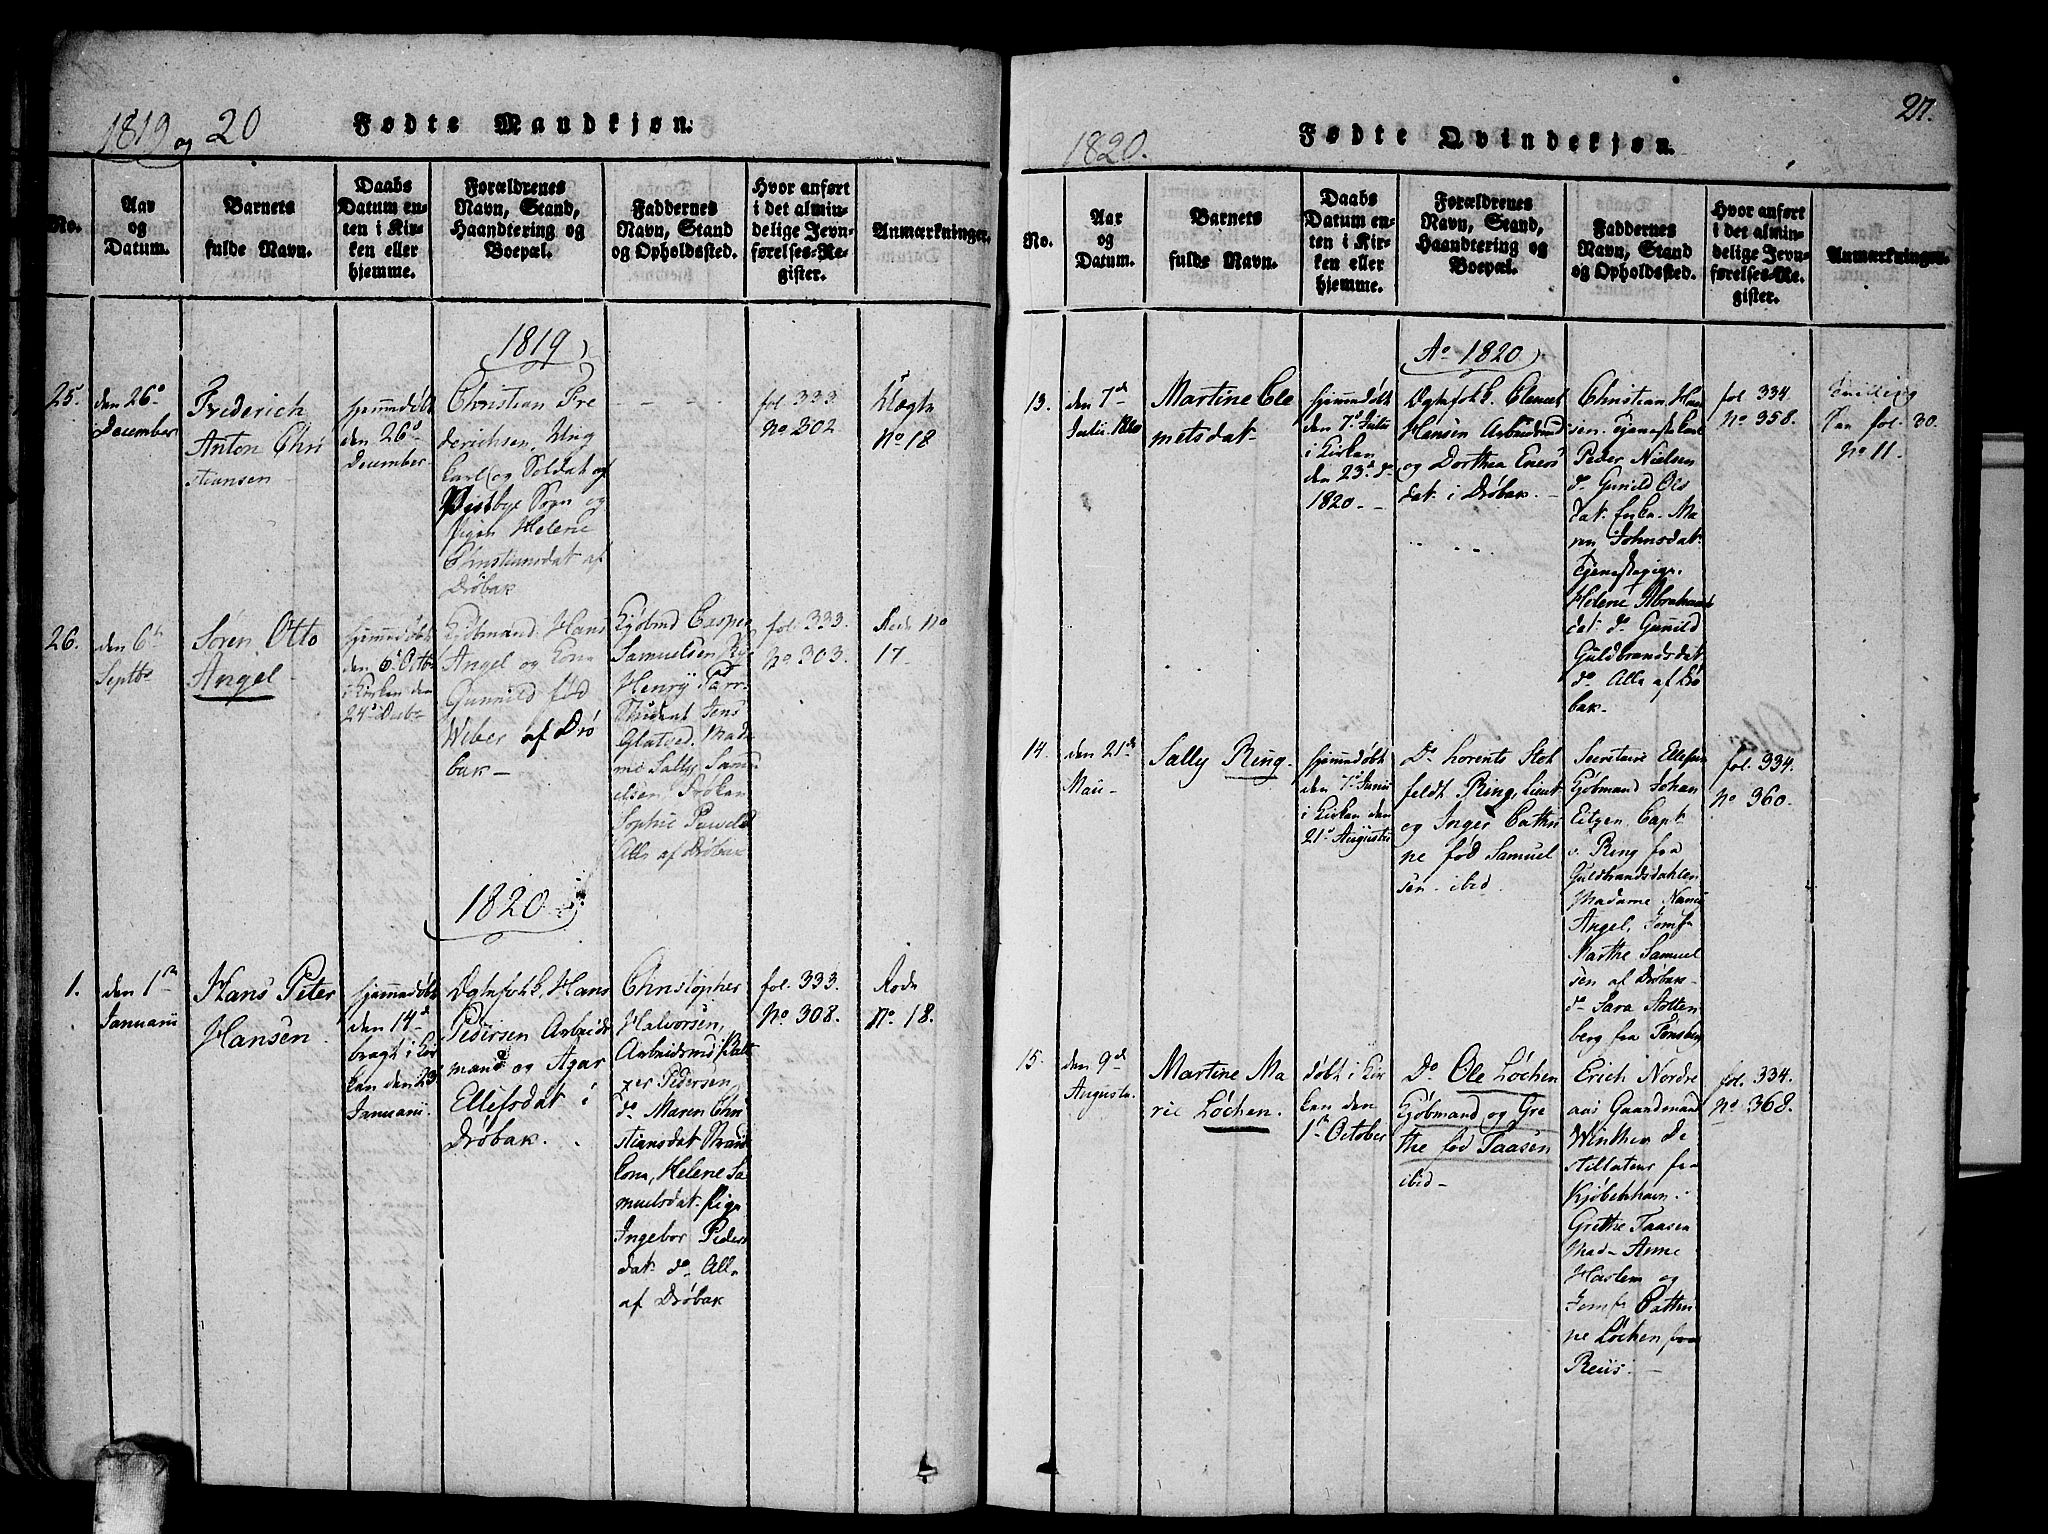 1819 og 20
Fødte Mandkjøn.
No.
Aar
og
Datum.
Barnets
fulde Navn.
Daabs
Datum en-
ten i Kir-
ken eller
hjemme.
Forældrenes
Navn, Stand,
Haandtering og
Boepæl.
Faddernes
Navn, Stand
og Opholdssted.
Hvor anført
i det almin-
delige Jevn-
førelses-Re-
gister.
Anmærkninger.
1819
25.
den 26de
December
Frederich
Anton Chri
stiansen
hjemmedøbt
den 26d
December
Christian Fre
derichsen, Ung
karl og Soldat af
Vestbye Sogn og
Pigen Helene
Christiansdat af
Drøbak
fol. 333
No 302
No 18
26.
den 6te
Septbr
Søren Otto
Angel
hjemmedøbt
den 6t Octb
i Kirken den
24d Decbr
Kjøbmand Hans
Angel og Kona
Gunnild fød
Weber af Drø
bak
Kjøbmd Casper
Samuelsen
Henry Parr
Student Jens
Mada
me Sally Samu
elsen Frøken
Sophie
Alle af Drøbak
fol. 333.
No 303.
Rode No
17
1820
1.
den 1te
Januarii
Hans Peter
Hansen
hjemmedøbt
den 14d
bragt i Kir
ken den 23d
Januarii
Ægtefolk, Hans
Pedersen Arbeids
mand og Agar
Ellefsdat i
Drøbak.
Christopher
Halvorsen,
Arbeidsmd, Balt
zer Pedersen
do Maren Chri
stiansdat
kone, Helene Sa
muelsdat Pige
Ingebor Peders
dat do Alle
af Drøbak
fol. 333.
No 308.
Rode
No 18.
27.
1820.
Fødte Qvindekjøn.
No.
Aar
og
Datum.
Barnets
fulde Navn.
Daabs
Datum en-
ten i Kir-
ken eller
hjemme.
Forældrenes
Navn, Stand,
Haandtering og
Boepæl.
Faddernes
Navn, Stand
og Opholdssted.
Hvor anført
i det almin-
delige Jevn-
førelses-Re-
gister.
Anmærkninger.
Ao 1820
13.
den 7de
Julii
Martine Cle
metsdat
hjemmedøbt
den 7d Julii
i Kirken
den 23d do
1820
Ægtefolk. Clemet
Hansen Arbeidsmd
og Dorthea Eners
dat i Drøbak.
Christian Han
sen. Tjenestekarl
Peder Nielsen
do Gunild Ols
dat Enke. Ma
ren Johnsdat
Tjenestepige.
Helene Abrahams
dat do Gunild
Guldbrandsdat
do Alle af Drø
bak
fol 334.
No 358.
Tvilling
fol. 30.
No 11.
14.
den 21de
Maii
Sally Ring
hjemmedøbt
den 7d Junii
i Kirken den
21d Augusti
Do Lorents Stok
feldt Ring, Lieut
og Inger Cathri
ne fød Samuel
sen ibid.
Secretaire Ellefsen
Kjøbmand Johan
Eitzen, Capt
v. Ring fra
Guldbrandsdahlen
Madame Nanci
Angel, Jomfr
Marthe Samuel
sen af Drøbak
do Sara Stolten
berg fra Tønsberg
fol. 334.
No 360.
15.
den 9de
Augusti
Martine Ma
rie Løchen.
døbt i Kir
ken den
1te October
Do Ole Løchen
Kjøbmand og Gre
the fød Taasen
ibid
Erich Nordre
aas Gaardmand
Winther De
stillateur fra
Kjøbenhavn
Grethe Taasen
Mad Anne
Haslem og
Jomfr Cathri
ne Løchen, fra
Reiis.
fol. 334.
No 368.